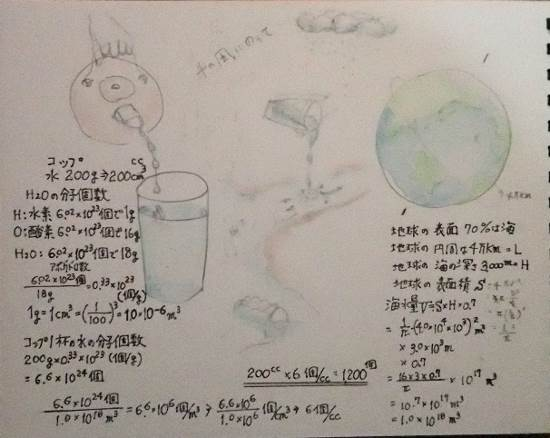 コップ cc
水 200g⇒200cm³
H₂Oの分子個数
H:水素 6.02×10²³個で1g
O:酸素 6.02×10²³個で16g
H₂O:6.02×10²³個で18g
アボガドロ数
6.02×10²³個/18g=0.33×10²³(個/g)
1g=1cm³=(1/100)³=1.0×10⁻⁶m³
コップ1杯の水の分子個数
200g×0.33×10²³(個/g)
=6.6×10²⁴個
6.6×10²⁴個/1.0×10¹⁸m³=6.6×10⁶個/m³⇒6.6×10⁶/1.0×10⁶個/cm³⇒6個/cc
200cc×6個/cc=1,200個
地球の表面 70%は海
地球の円周は4万km=L
地球の海の深さ3,000m=H
地球の表面積 S
海量V=S×H×0.7
=1/π(4.0×10⁴×10³)²m²
×3.0×10³m
×0.7
=16×3×0.7/π×10¹⁷m³
=10.7×10¹⁷m³
=1.0×10¹⁸m³